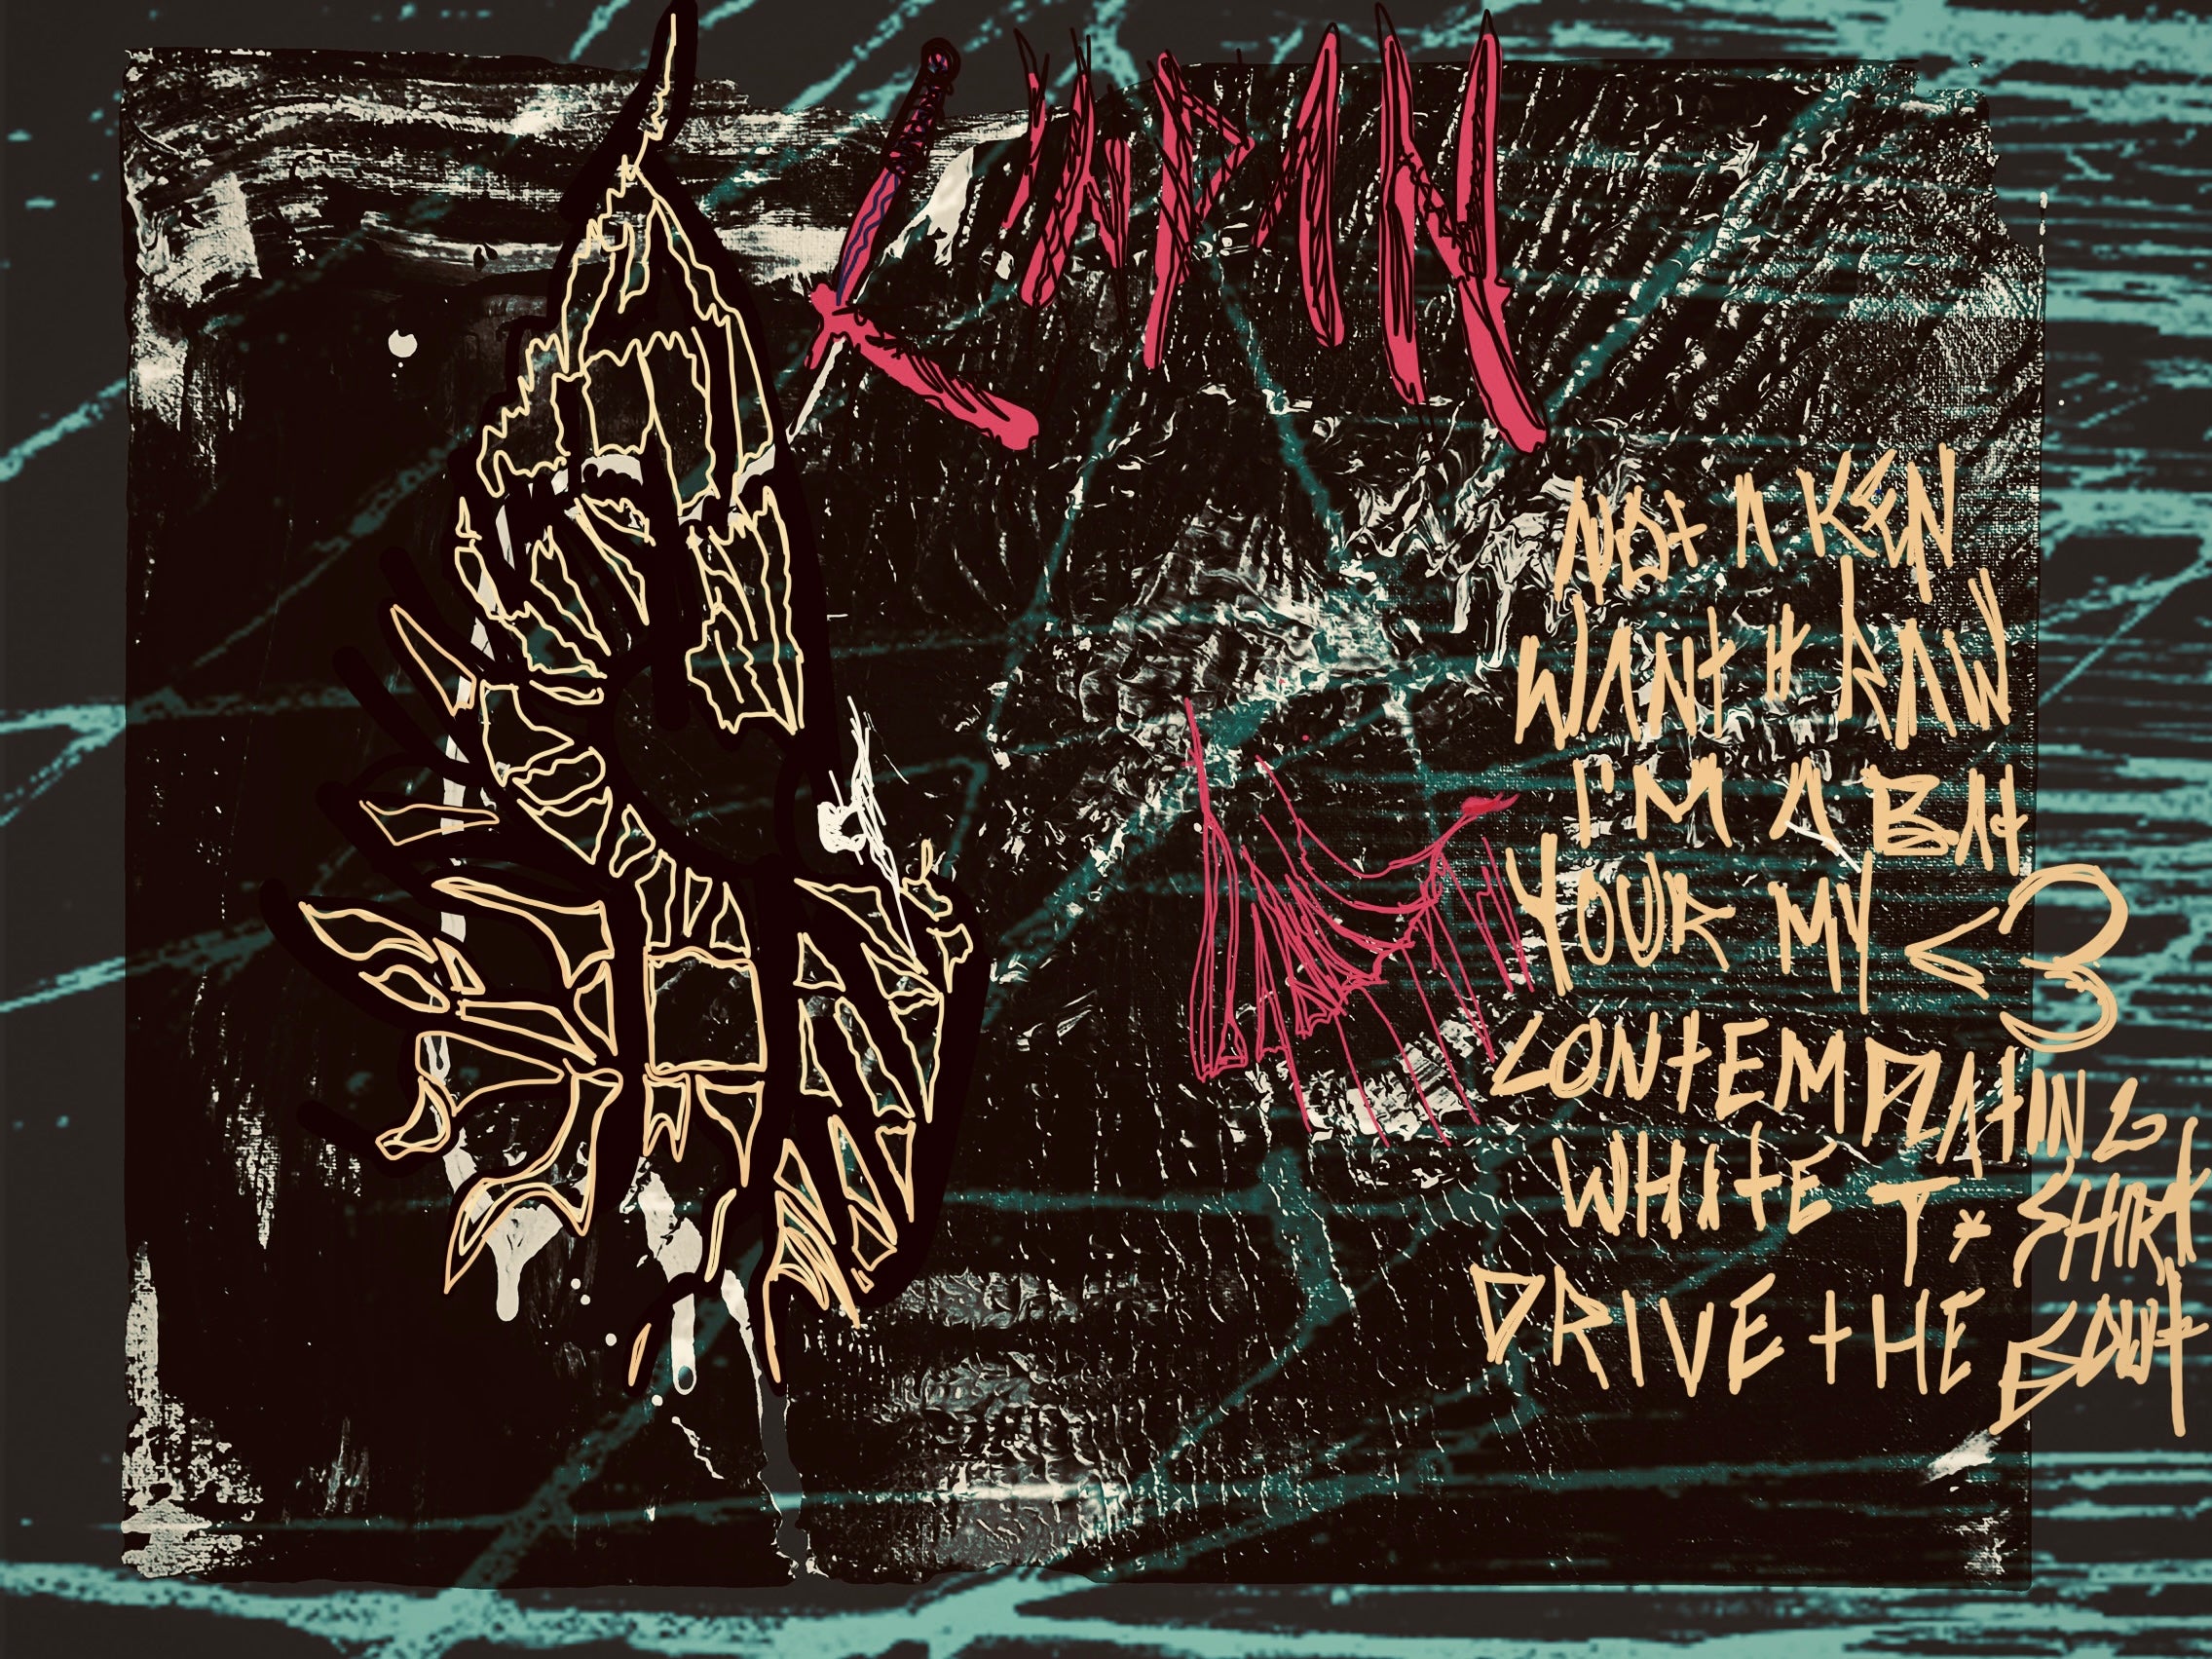 NOt A KEN
WANt It RAW
I'M A BAt
YOUR MY <3
CONtEMPLAtING
WHItE T* SHIRt
DRIVE tHE